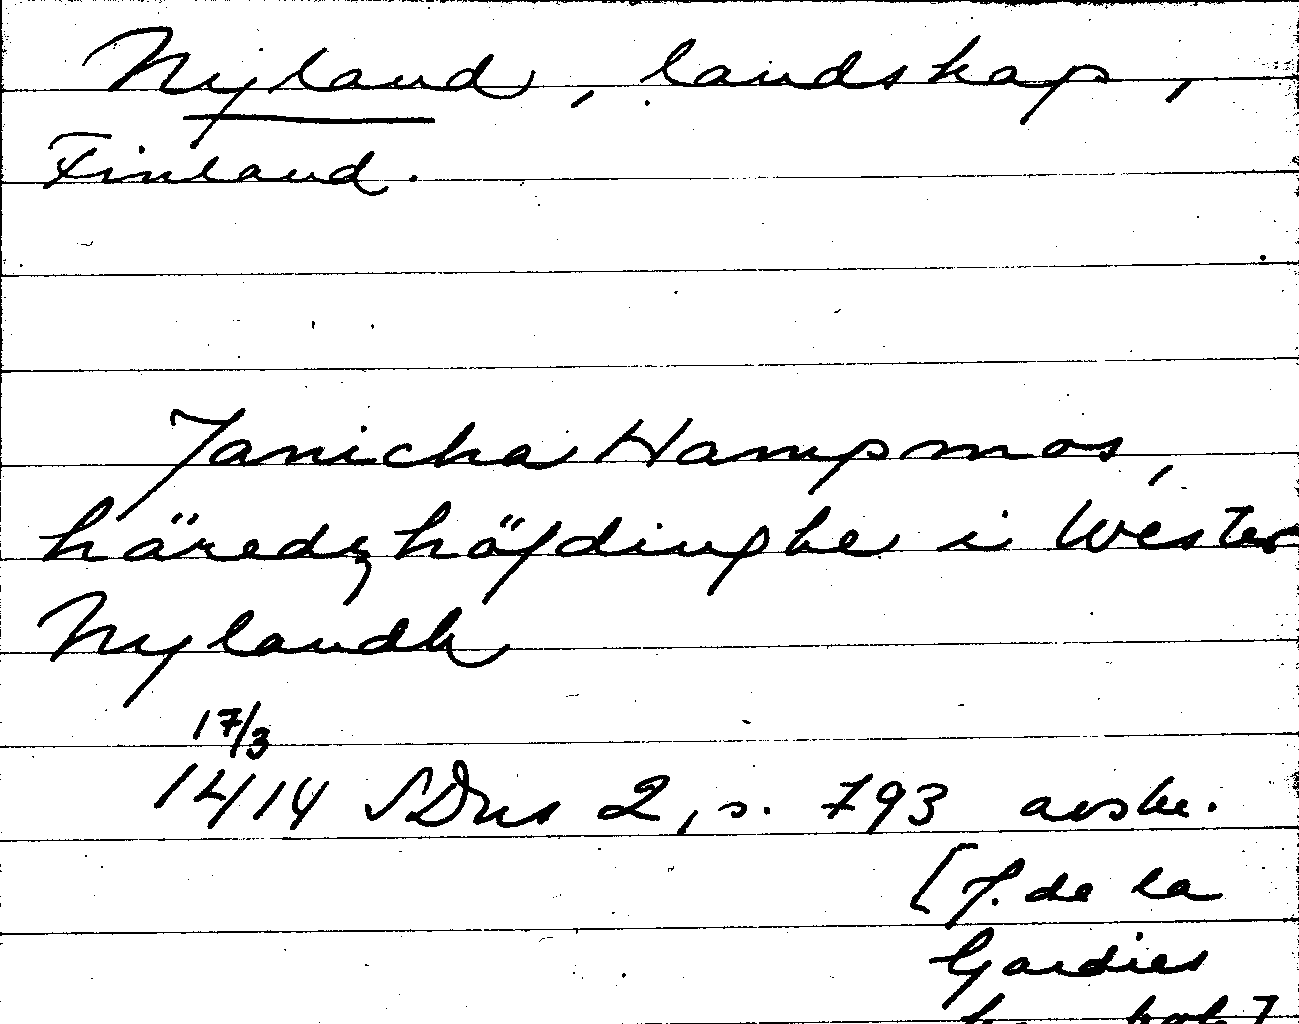 Nyland, landskap,
Finland.
Janicha Hampmos,
häredzhöfdinghe i Wester
Nylandh
17/3
1414 SDns 2, s. 793 avskr.
[J. de la
Gardies